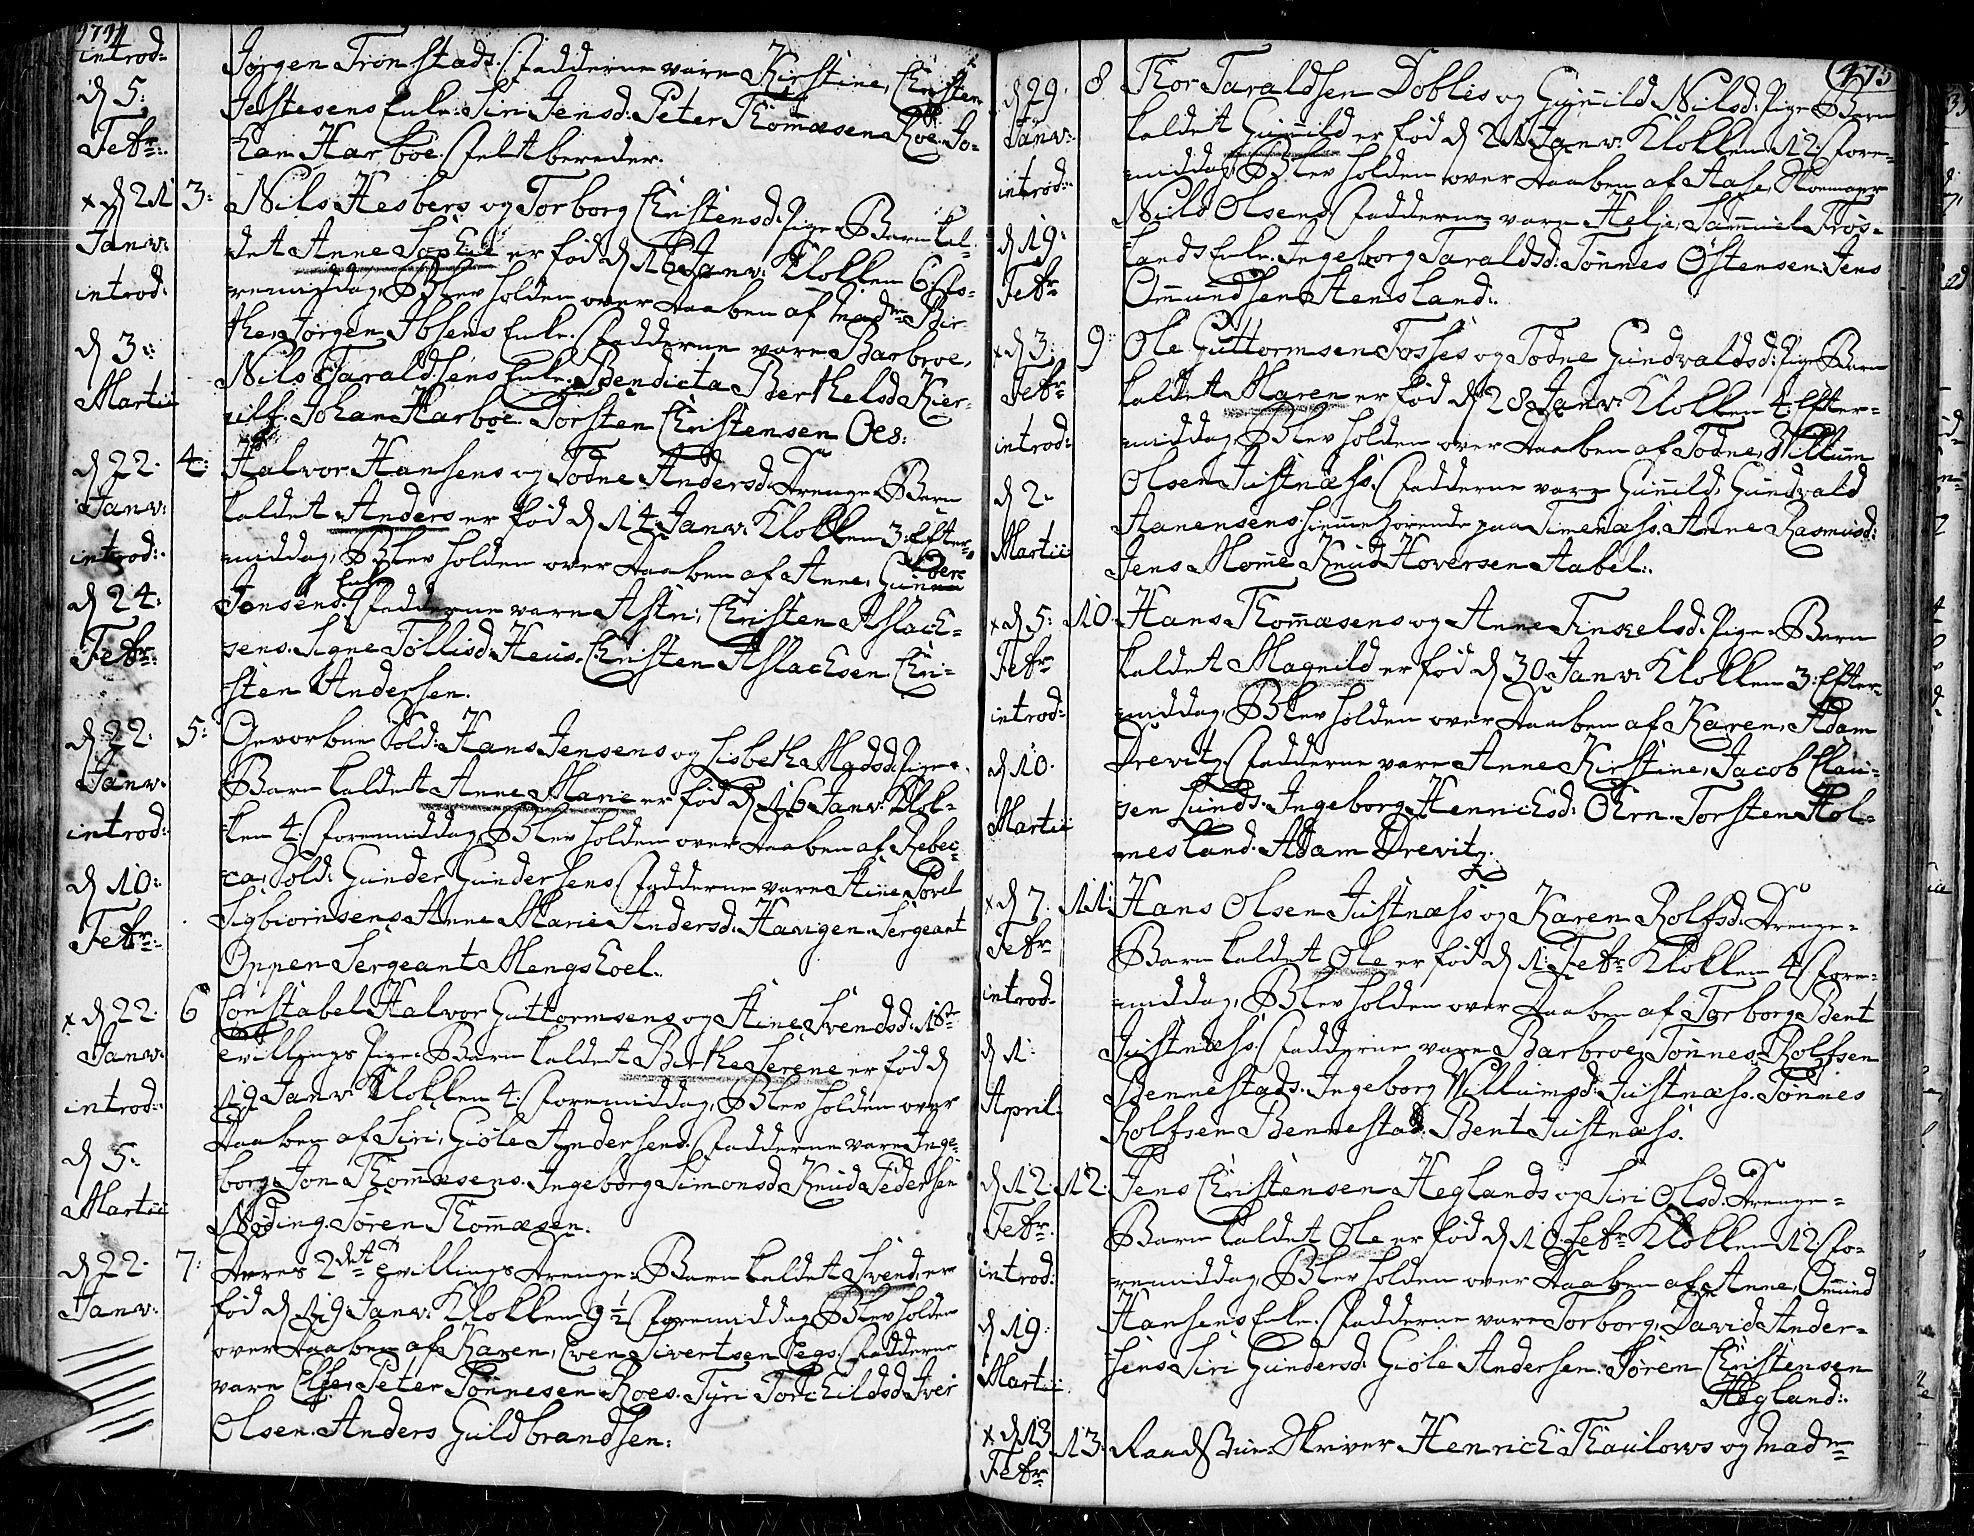 introd:
d 5:
Febr:
Jørgen Tronstads. Fadderne vare Kirstine, Christen
Jelstesens Enke. Siri Jensd: Peter Thomæsen Roe. Jo-
han Harboe. Feltbereder.
x d 21 3:
Janv:
introd:
d 3:
Martii
Nils Hesbers og Torborg Christensd: Pige-Barn kal-
det Anne Sophie er fød d 16 Janv: Klokken 6 Fo-
remiddag, Blev holden over Daaben af Mad: Bir-
the, Jørgen Ibsens Enke. Fadderne vare Barbroe,
Nils Taraldsens Enke. Bendicta Berthelsd Kier-
ulf. Johan Harboe. Torsten Christensen Oes:
d 22. 4:
Janv:
introd:
d 24:
Febr:
Halvor Hansens og Todne Andersd: Drenge-Barn
kaldet Anders er fød d 14 Janv: Klokken 3: Efter-
middag, Blev holden over Daaben af Anne, Gunder
Jensens Enke. Fadderne vare Astri, Christen Aslack-
sens. Signe Tollisd. Heüs. Christen Aslacksen. Chri-
sten Andersen.
d 22: 5:
Janv:
introd:
d 10:
Febr:
Gevorbne Sold: Hans Jensens og Lisbeth Madsd: Pige-
Barn kaldet Anne Marie er fød d 16 Janv: Klok-
ken 4: Foremiddag, Blev holden over Daaben af Rebec-
ca, Sold: Gunder Gundersens. Fadderne vare Stine Porel
Sigbiornsens. Anne Marie Andersd: Haugen. Sergeant
Oppen. Sergeant Mengshoel.
x d 22. 6
Janv:
introd:
d 5:
Martii
Constabel Halvor Guttormsens og Stine Svendsd: 1ste
tvillings Pige-Barn kaldet Birthe Serene er fød d
19 Janv: Klokken 4: Foremiddag, Blev holden over
Daaben af Siri, Giøle Andersens. Fadderne vare Inge-
borg Jon Thomæsens. Ingeborg Simonsd. Knud Pedersen
Nøding. Søren Thomæsen.
d 22. 7:
Janv:
Deres 2det tvillings Drenge-Barn kaldet Svend, er
fød d 19 Janv: Klokken 9½ Foremiddag, Blev holden
over Daaben af Karen, Even Sivertsen Eegs. Fadderne
vare Else, Peter Tønnesen Roes. Tyri Torchildsd. Iver
Olsen. Anders Guldbrandsen:
(475
d 29. 8
Janv:
introd:
d 19:
Febr
Thor Taraldsen Dobles og Gunnild Nilsd: Pige-Barn
kaldet Gunnild er fød d 21 Janv: Klokken 12: Fore-
middag, Blev holden over Daaben af Aase,
Nils Olsens. Fadderne vare Helje, Sammuel Trøs-
lands Enke. Ingeborg Taraldsd: Tønnes Østensen. Jens
Ommundsen Stensland:.
x d 3: 9
Febr
introd:
d 2
Martii
Ole Guttormsen Tosses og Todne Gundvaldsd: Pige-Barn
kaldet Maren er fød d 28 Janv: Klokken 4: Efter-
middag, Blev holden over Daaben af Todne, Willum
Olsen Justnæss. Fadderne vare Gunnild, Gundvald
Aanensens hiemmehørende paa Timenæss. Anne Rasmusd:
Jens Momme. Knud Hoversen Aabel:.
x d 5: 10
Febr
introd:
d 10.
Martii
Hans Thomæsens og Anne Tinkelsd: Pige-Barn
kaldet Magnild er fød d 30 Janv: Klokken 3: Efter-
middag, Blev holden over Daaben af Karen, Adam
Drevitz. Fadderne vare Anne Kirstine, Jacob Clau-
sen Lunds. Ingeborg Henrichsd: Øirn. Torsten Hol-
mesland. Adam Drevitz.
x d 7. 11:
Febr
introd:
d 1:
April:
Hans Olsen Justnæss og Karen Rolfsd: Drenge-
Barn kaldet Ole er fød d 1 Febr Klokken 4 Fore-
middag, Blev holden over Daaben af Torborg Bent
Justnæss. Fadderne vare Barbroe, Tønnes Rolfsen
Bennestads. Ingeborg Willumsd: Justnæss. Tønnes
Rolfsen Bennestad. Bent Justnæss.
d 12. 12:
Febr:
introd:
d 19:
Martii
Jens Christensen Heglands og Siri Olsd: Drenge-
Barn kaldet Ole er fød d 10 Febr Klokken 12 Fo-
remiddag, Blev holden over Daaben af Anne, Ommund
Hansens Enke. Fadderne vare Torborg, David Ander-
sens. Siri Gundersd: Giøle Andersen. Søren Christensen
Hegland:.
x d 13 13:
Febr
Raadstue-Skriver Henrich Thaulows og Mad: